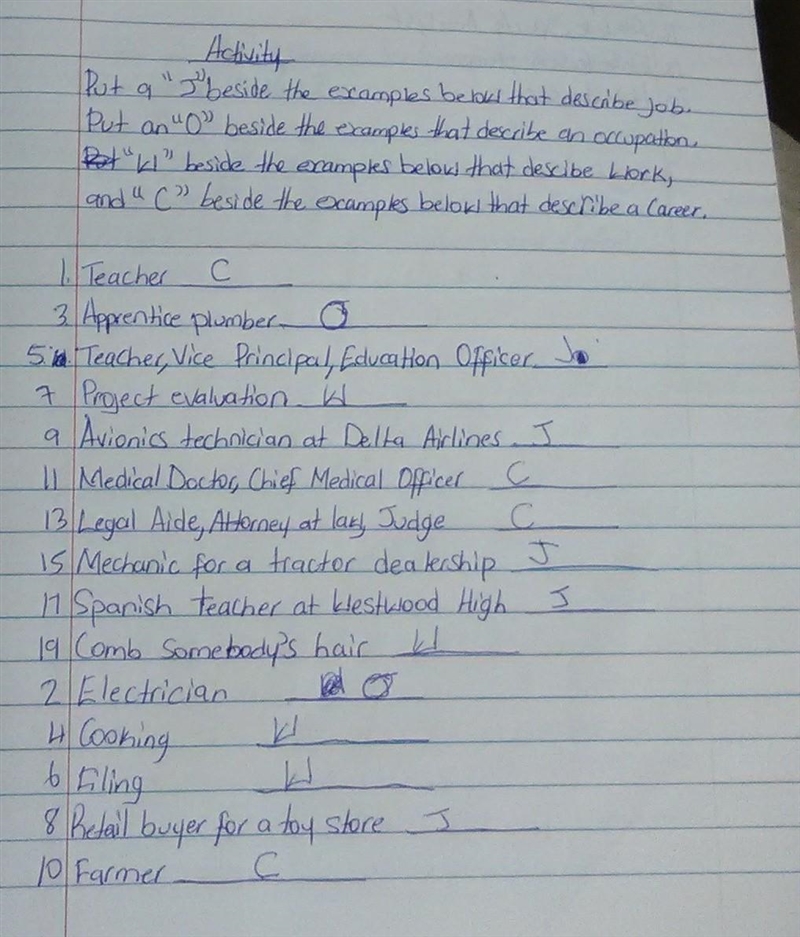 Activity
Put a "J" beside the examples below that describe job.
Put an "O" beside the examples that describe an occupation.
"W" beside the examples below that descibe work,
and "C" beside the examples below that describe a career.
1. Teacher C
3 Apprentice plumber O
5. Teacher, Vice Principal, Education Officer J
7 Project evaluation W
9 Avionics technician at Delta Airlines J
11 Medical Doctor, Chief Medical Officer C
13 Legal Aide, Attorney at law, Judge C
15 Mechanic for a tractor dealership J
17 Spanish teacher at Westwood High J
19 Comb somebody's hair W
2 Electrician O
4 Cooking W
6 Filing W
8 Retail buyer for a toy store J
10 Farmer C